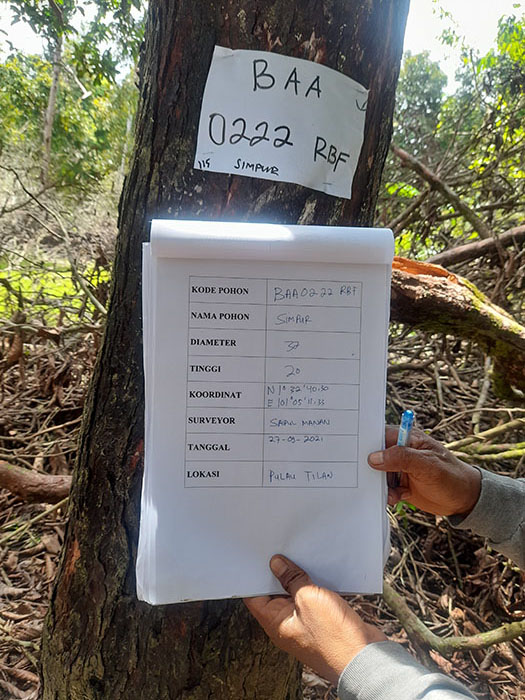 BAA
0222 RBF
115 SIMPUR
KODE POHON BAA 0222 RBF
NAMA POHON SIMPUR
DIAMETER 32
TINGGI 20
KOORDINAT N 1° 32' 40.50
E 101° 05' 11.33
SURVEYOR MANAN
TANGGAL 27-09-2021
LOKASI PULAU TILAN